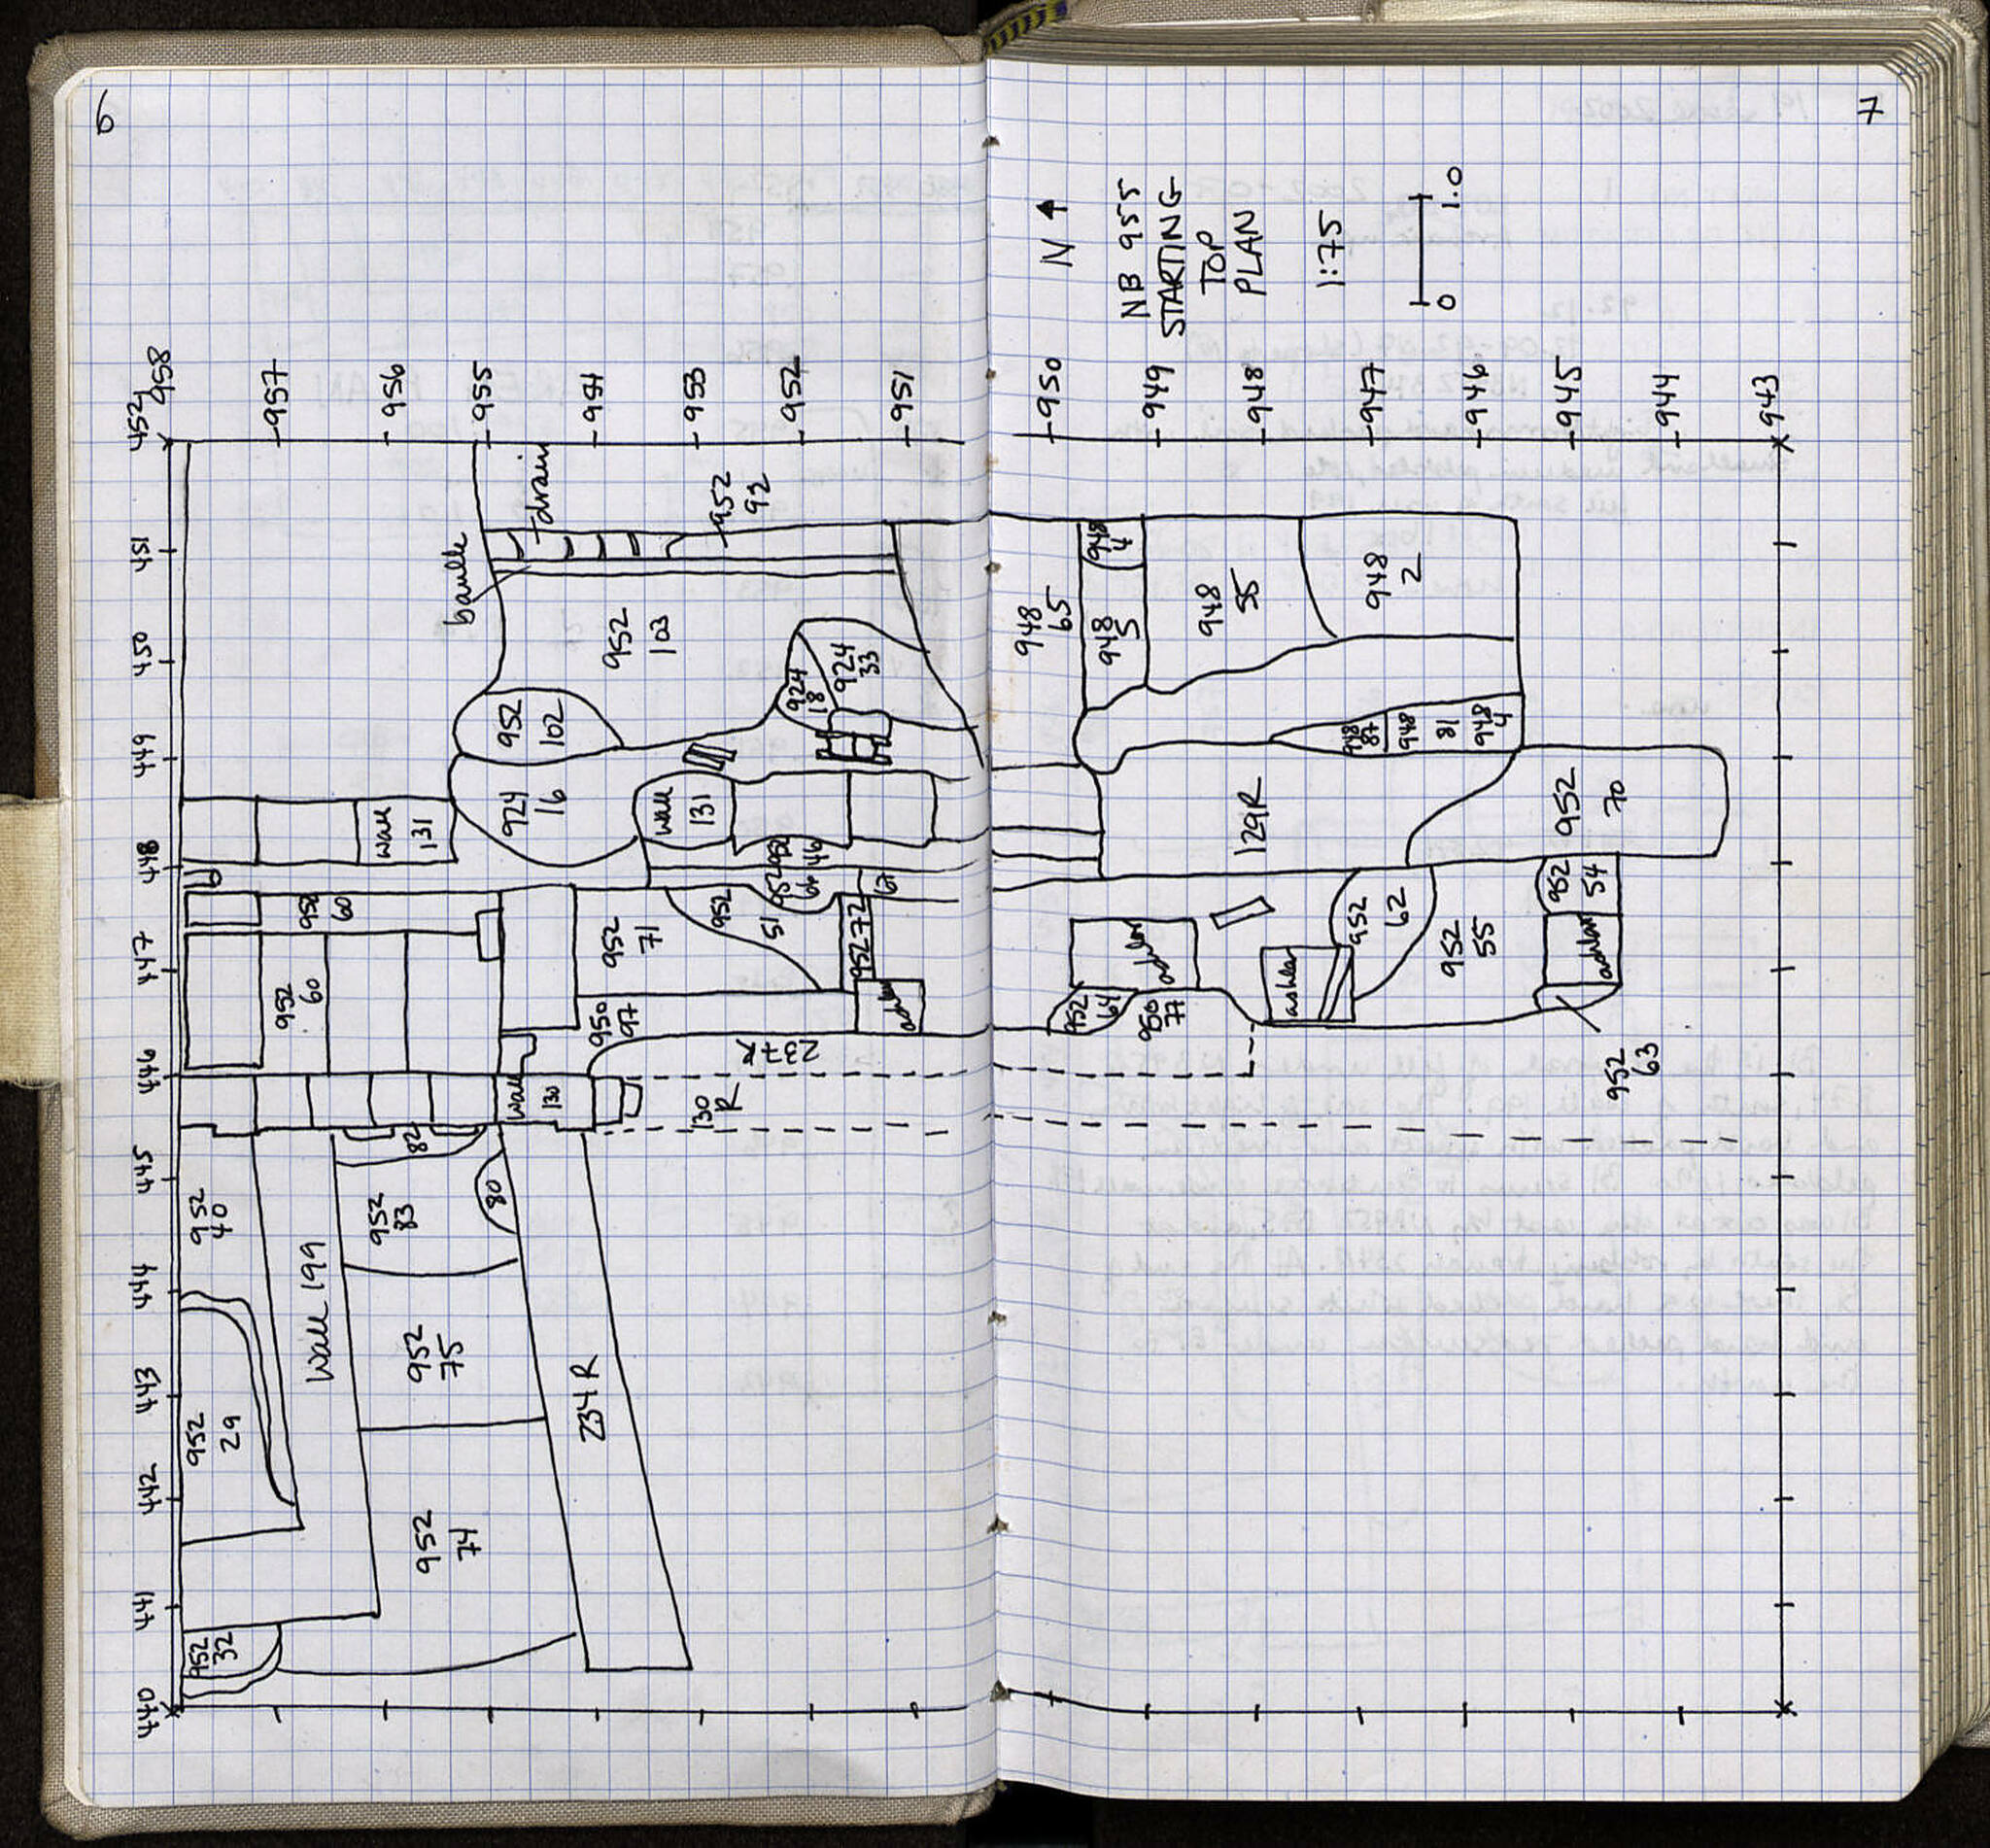 6
7
N
NB 955
STARTING
TOP
PLAN
1:75
0 1.0
452
451
450
449
448
447
446
445
444
443
442
441
440
958
957
956
955
954
953
952
951
950
949
948
947
946
945
944
943
drain
baulk
952
92
952
103
952
102
924
18
924
33
924
16
wall
131
wall
131
952
46
952
64
67
952
60
952
60
952
71
952
51
952 72
ashlar
950
97
237R
wall
130
130
R
82
952
40
952
83
80
wall 199
952
29
952
75
234R
952
74
952
32
948
65
948
4
948
5
948
55
948
2
948
87
948
81
948
4
129R
952
70
952
62
952
55
952
54
ashlar
ashlar
ashlar
952
61
950
77
952
63